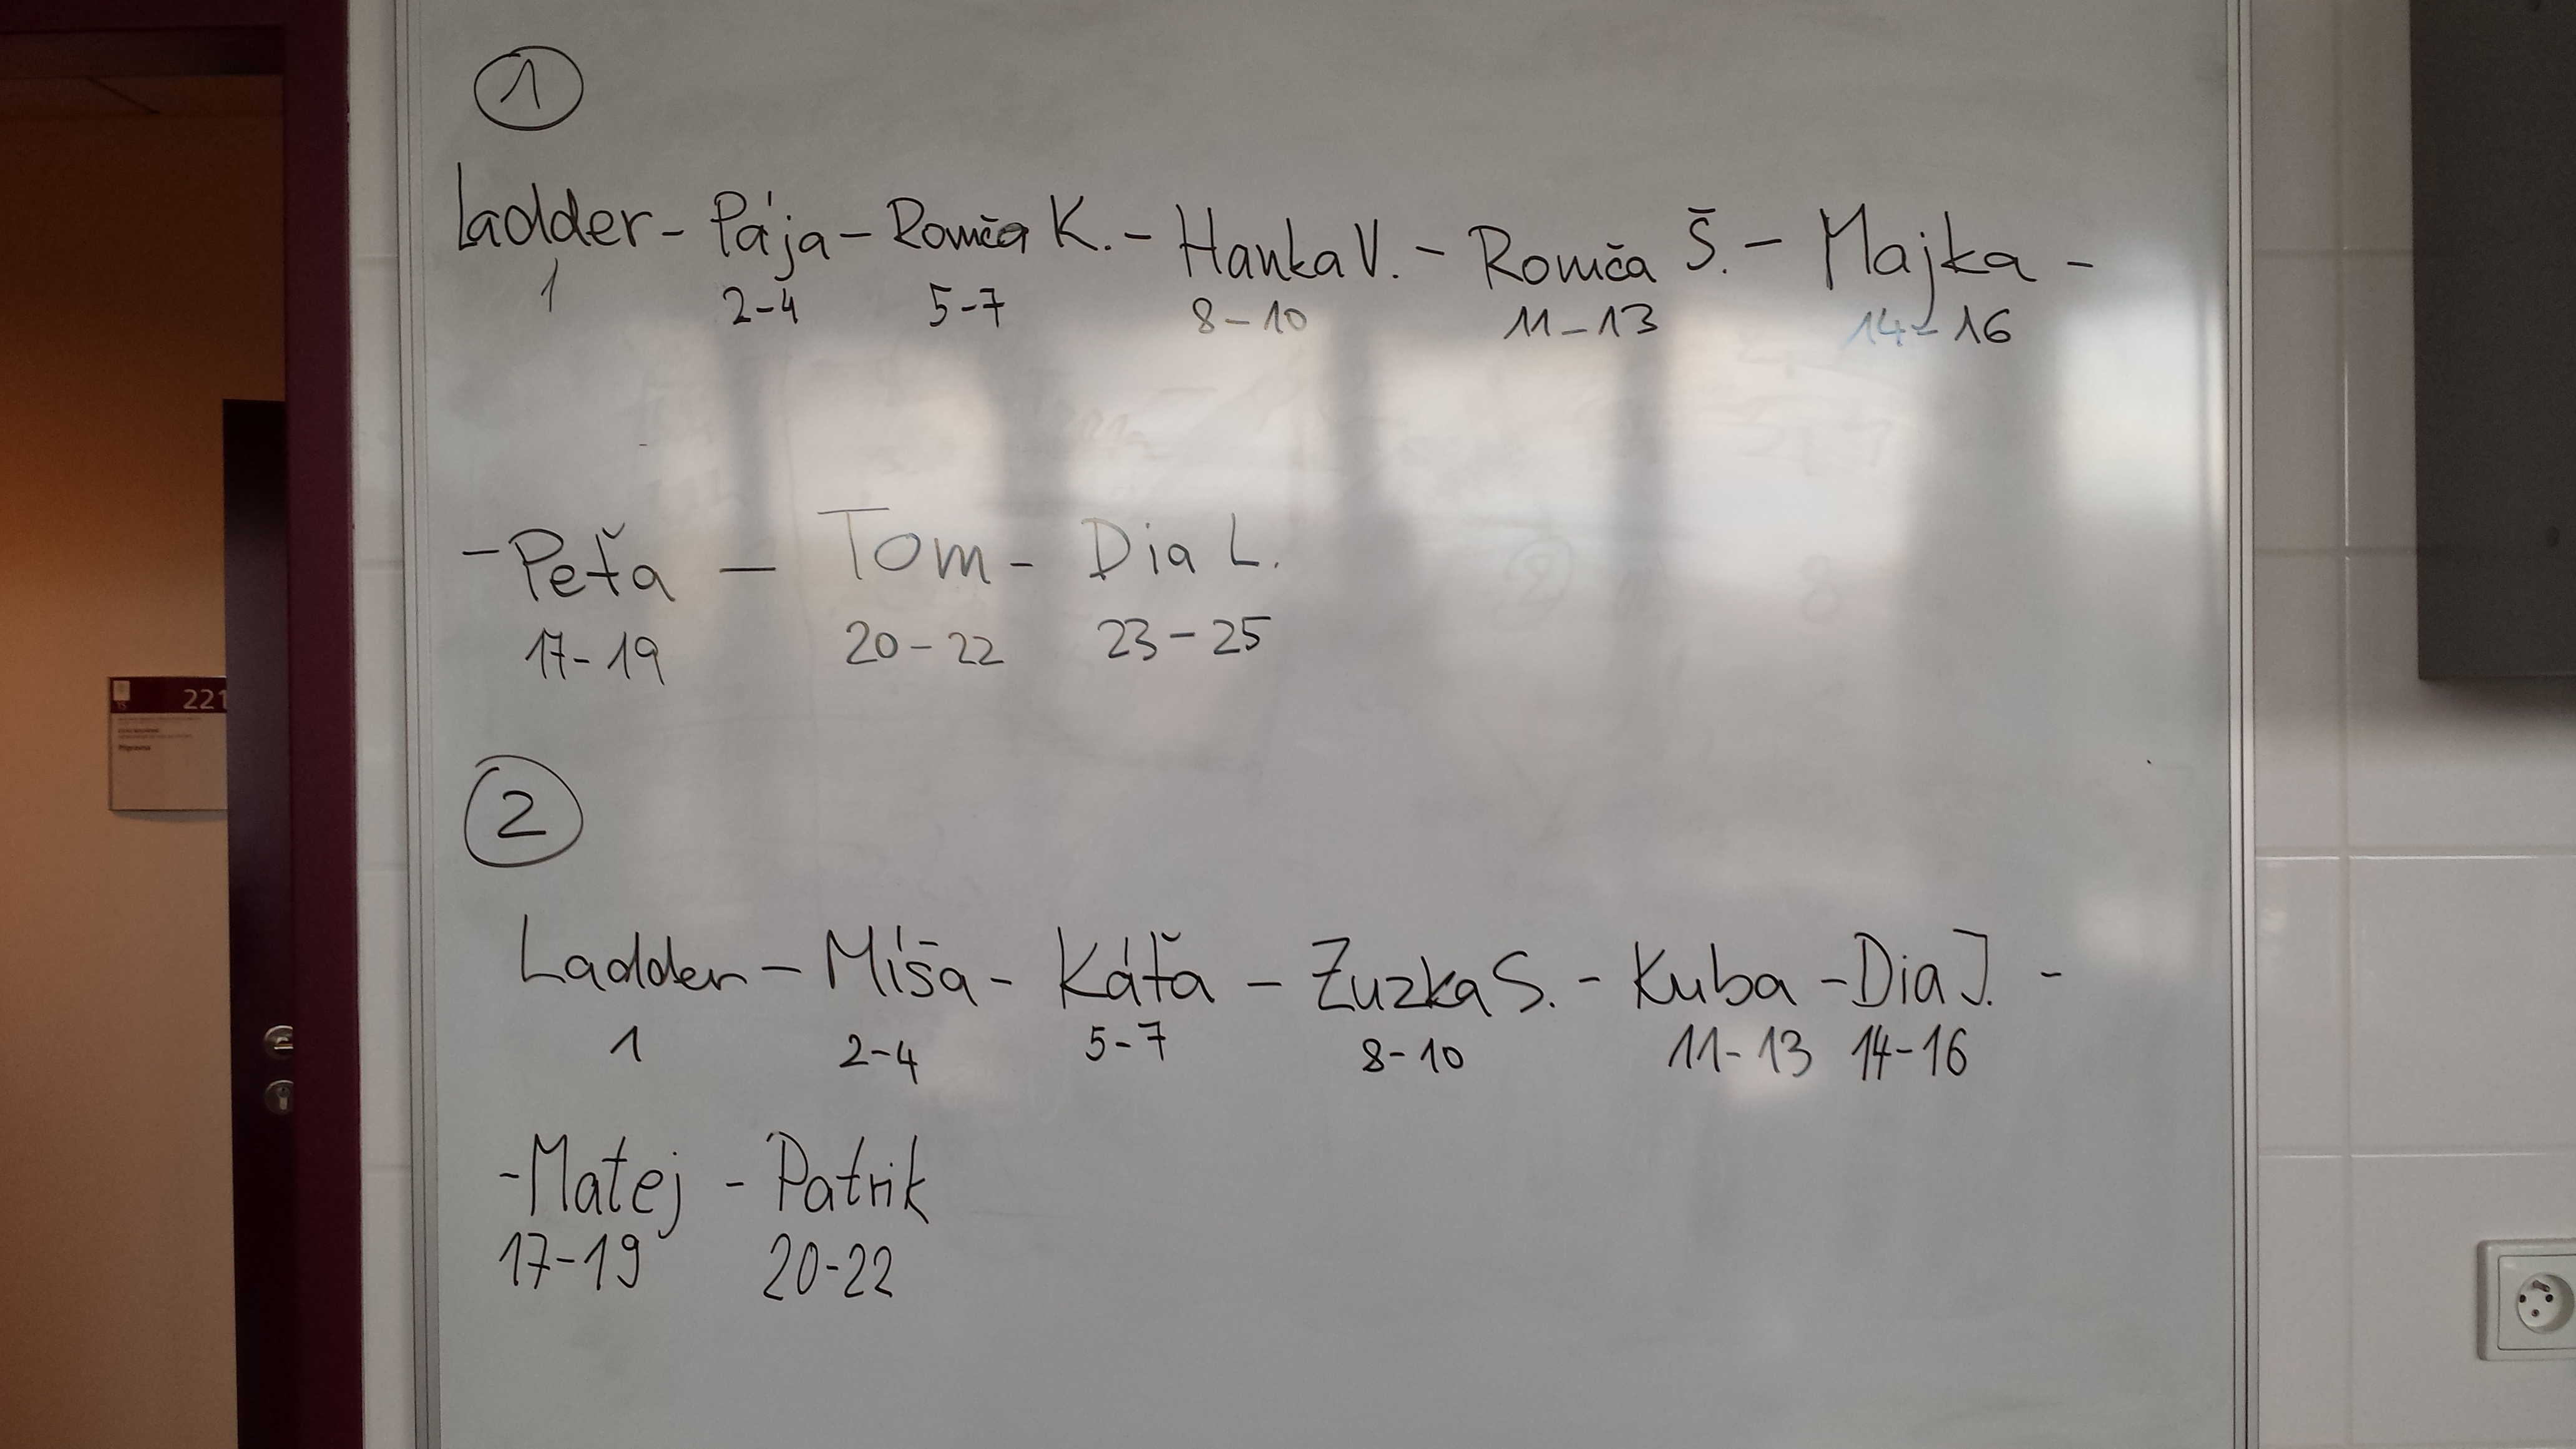 1
Ladder - Pája - Romča K. - Hanka V. - Romča Š. - Majka -
1 2-4 5-7 8-10 11-13 14-16
- Peťa - Tom - Dia L.
17-19 20-22 23-25
221
2
Ladder - Míša - Káťa - Zuzka S. - Kuba - Dia J. -
1 2-4 5-7 8-10 11-13 14-16
- Matej - Patrik
17-19 20-22